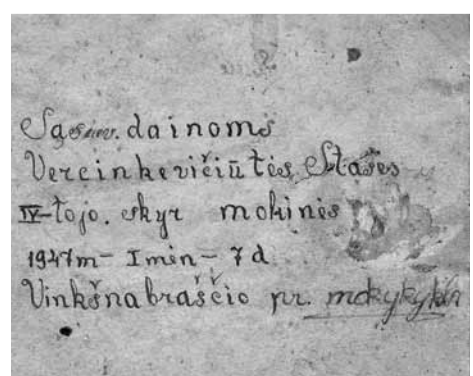 Sąsiuv. dainoms
Vercinkevičiūtės Stasės
IV-tojo. skyr mokinės
1947m- I mėn- 7d
Vinkšnabraščio pr. mokykykla